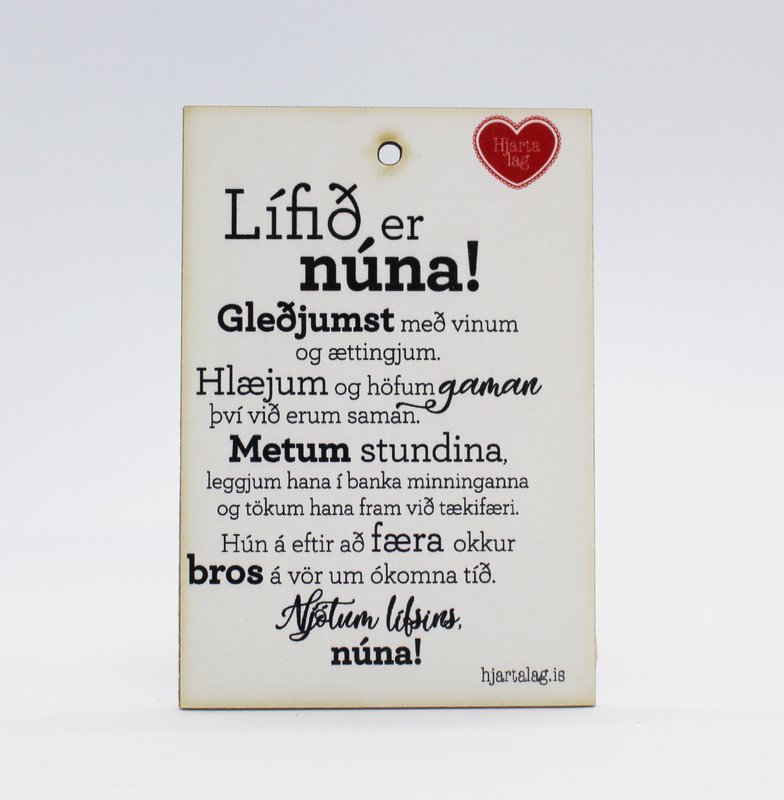 Hjarta
lag
Lífið er
núna!
Gleðjumst með vinum
og ættingjum.
Hlæjum og höfum gaman
því við erum saman.
Metum stundina,
leggjum hana í banka minninganna
og tökum hana fram við tækifæri.
Hún á eftir að færa okkur
bros á vör um ókomna tíð.
Njótum lífsins,
núna!
hjartalag.is